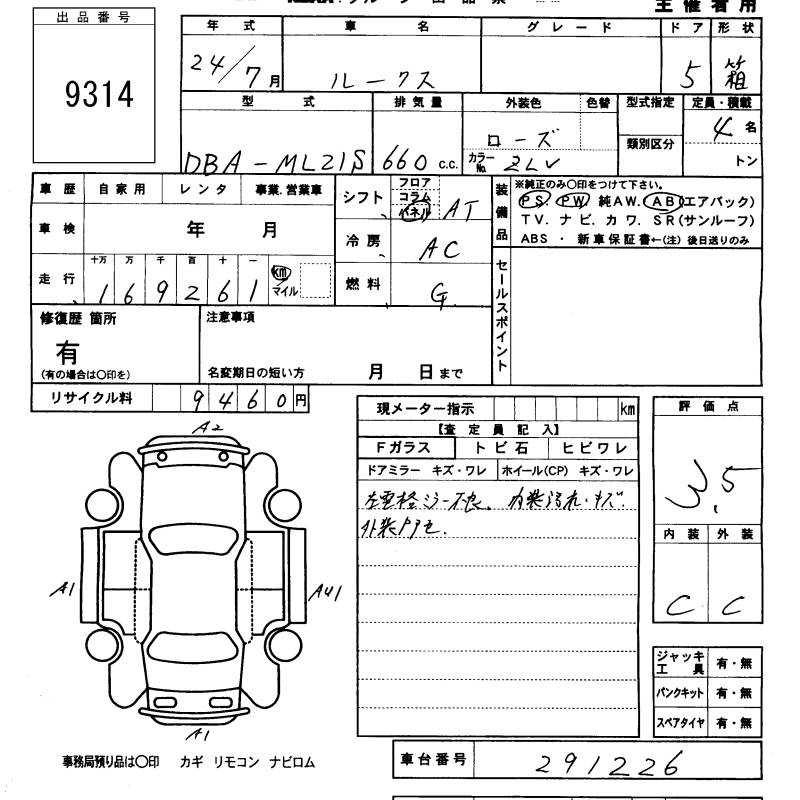 主催者用
出品番号
9314
年式 車名 グレード ドア 形状
24/7月 ルークス 5 箱
型式 排気量 外装色 色替 型式指定 定員・積載
DBA-ML21S 660 c.c. ローズ 類別区分 4名
カラーNo. ZLV トン
車歴 自家用 レンタ 事業.営業車
車検 年 月
走行 十万 万 千 百 十 一
1 6 9 2 6 1 km マイル
シフト フロア コラム パネル AT
冷房 AC
燃料 G
装備品 ※純正のみ○印をつけて下さい。
PS PW 純AW. AB(エアバック)
TV. ナビ. カワ. SR(サンルーフ)
ABS ・ 新車保証書←(注) 後日送りのみ
セールスポイント
修復歴 箇所 注意事項
有
(有の場合は○印を) 名変期日の短い方 月 日まで
リサイクル料 9 4 6 0 円
現メーター指示 km
【査定員記入】
Fガラス トビ石 ヒビワレ
ドアミラー キズ・ワレ ホイール(CP) キズ・ワレ
内装汚れ・キズ.
評価点
3.5
内装 外装
C C
A2
A1 AU1
A1
ジャッキ工具 有・無
パンクキット 有・無
スペアタイヤ 有・無
事務局預り品は○印 カギ リモコン ナビロム
車台番号 291226